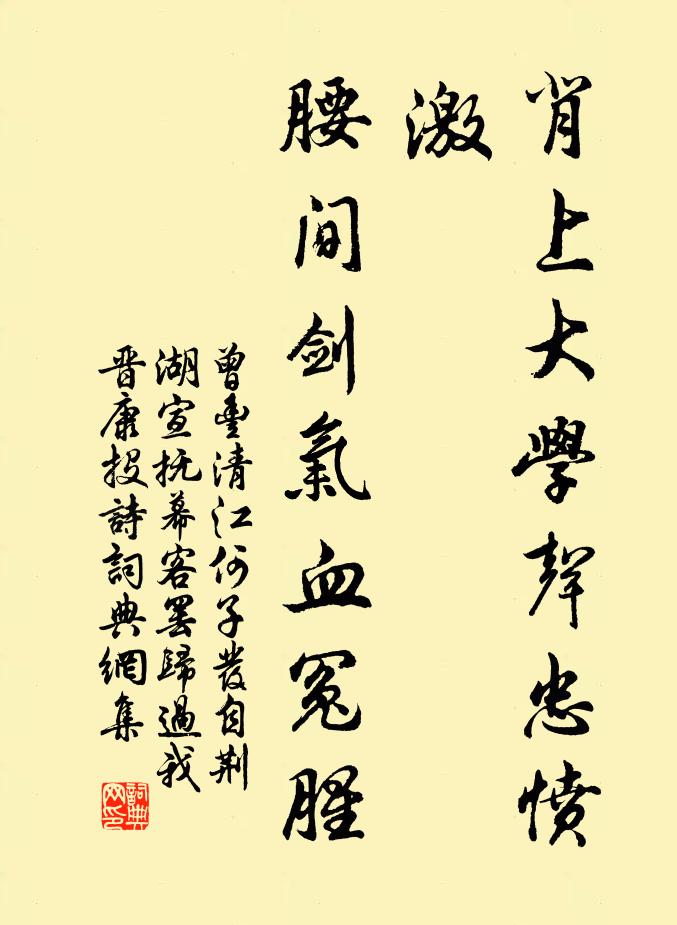 背上大學聲忠憤
激
腰間劍氣血冤腥
曾豐清江何子發自荆
湖宣抚幕客罢歸過我
晋康投詩詞典網集
詞典网印